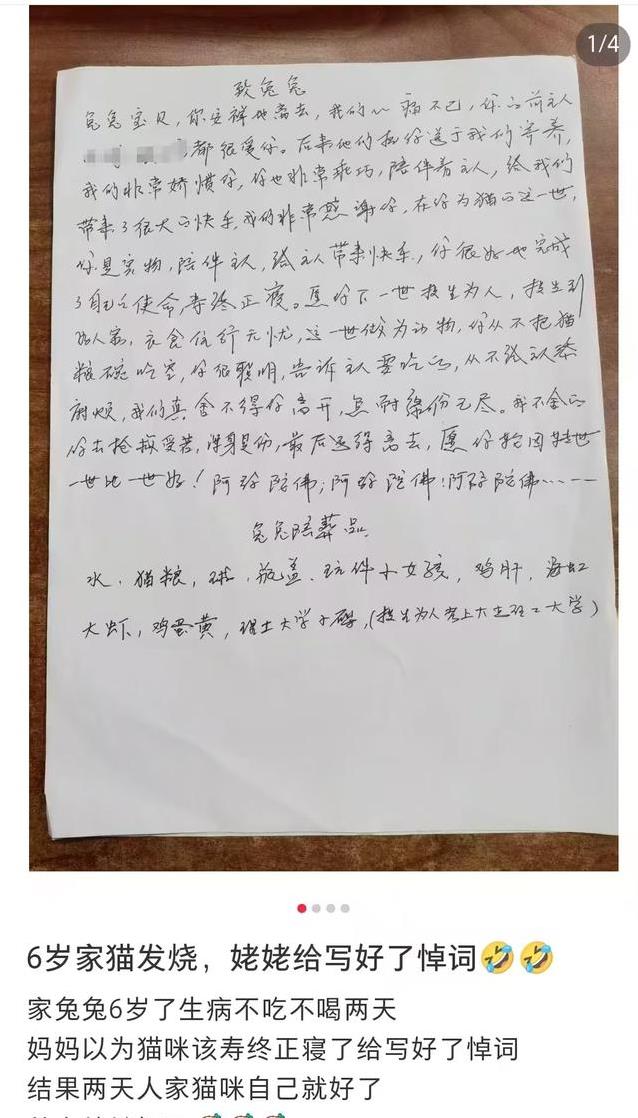 1/4
致兔兔
兔兔宝贝，你安祥地离去，我们心痛不已，你的前主人
都很爱你。后来他们把你送于我们寄养，
我们非常娇惯你，你也非常乖巧，陪伴着主人，给我们
带来了很大的快乐，我们非常感谢你，在你为猫的这一世，
你是宠物，陪伴主人，给主人带来快乐，你很好地完成
了自己使命，寿终正寝。愿你下一世投生为人，投生到
好人家，衣食住行无忧，这一世做为动物，你从不把猫
粮碗吃空，你很聪明，告诉主人要吃的，从不给主人添
麻烦，我们真舍不得你离开，怎耐缘份已尽。我不舍的
你去抢救受苦，浑身是伤，最后还得离去，愿你轮回转世
一世比一世好！阿弥陀佛；阿弥陀佛！阿弥陀佛……
兔兔陪葬品
水、猫粮，球、瓶盖、玩伴小女孩，鸡肝，海虹
大虾，鸡蛋黄，理工大学，(投生为人考上大连理工大学)
6岁家猫发烧，姥姥给写好了悼词🤣🤣
家兔兔6岁了生病不吃不喝两天
妈妈以为猫咪该寿终正寝了给写好了悼词
结果两天人家猫咪自己就好了